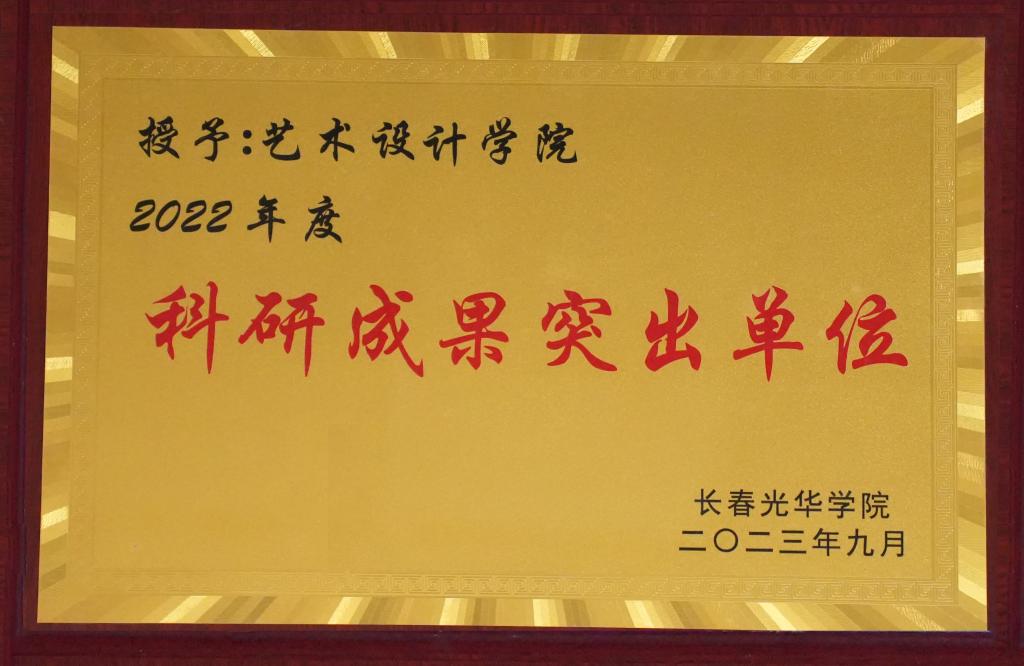 授予:艺术设计学院
2022年度
科研成果突出单位
长春光华学院
二〇二三年九月